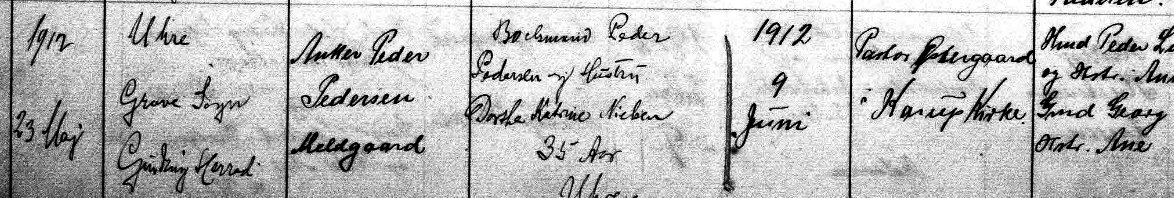 1912
23 Maj
Uhre
Grove Sogn
Ginding Herred
Anker Peder
Pedersen
Meldgaard
Boelsmand Peder
Pedersen og Hustru
Dorthe Katrine Nielsen
35 Aar
Uhre
1912
9
Juni
Pastor Østergaard
i Karup Kirke
Hmd Peder
og Hstr. Ane
Gmd Georg
Hstr. Ane